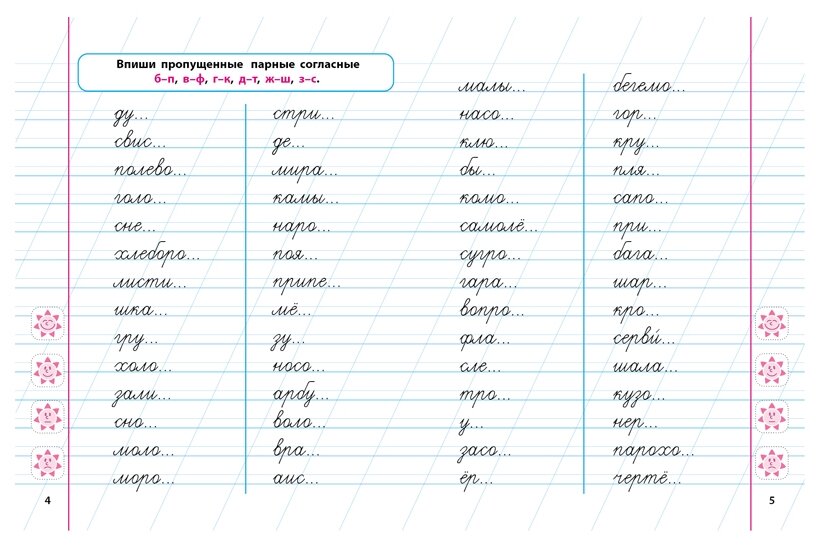 Впиши пропущенные парные согласные
б–п, в–ф, г–к, д–т, ж–ш, з–с.
ду...
свис...
полево...
голо...
сне...
хлеборо...
листи...
шка...
гру...
холо...
зали...
сно...
моло...
моро...
стри...
де...
мира...
камы...
наро...
поя...
припе...
мё...
зу...
носо...
арбу...
воло...
вра...
аис...
4
малы...
насо...
клю...
бы...
комо...
самолё...
сугро...
гара...
вопро...
фла...
сле...
тро...
у...
засо...
ёр...
бегемо...
гор...
кру...
пля...
сапо...
при...
бага...
шар...
кро...
серви́...
шала...
кузо...
нер...
парохо...
чертё...
5